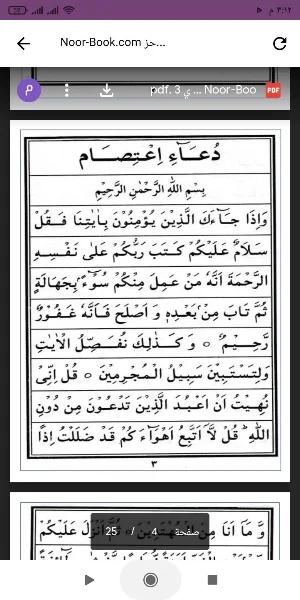 ٣:١٢ م
Noor-Book.com حز...
pdf. 3 ي ... Noor-Boo
PDF
P
دُعَـآءِ اِعْتِصَـام
بِسْمِ اللهِ الرَّحْمٰنِ الرَّحِيْمِ
وَاِذَا جَـآءَكَ الَّذِيْنَ يُؤْمِنُوْنَ بِاٰيٰتِنَا فَـقُلْ
سَـلَامٌ عَلَيْكُمْ كَـتَبَ رَبُّكُمْ عَلٰى نَفْسِـهِ
الرَّحْمَةَ اَنَّهٗ مَنْ عَمِلَ مِنْكُمْ سُوْٓءًۢ بِجَهَالَةٍ
ثُمَّ تَابَ مِنْۢ بَعْدِهٖ وَ اَصْلَحَ فَـاَنَّهٗ غَـفُوْرٌ
رَّحِـيْـمٌ ○ وَ كَـذٰلِكَ نُفَـصِّلُ الْاٰيٰتِ
وَلِتَسْـتَبِيْنَ سَبِيْلُ الْـمُجْرِمِيْنَ ○ قُلْ اِنِّىْ
نُهِيْتُ اَنْ اَعْبُـدَ الَّذِيْنَ تَدْعُـوْنَ مِنْ دُوْنِ
اللهِ ؕ قُلْ لَّآ اَتَّبِعُ اَهْوَآءَ كُمْ قَدْ ضَلَلْتُ اِذًا
٣
وَّ مَـا اَنَا مِنَ الْمُهْتَدِيْنَ ○ ثُمَّ اَنْزَلَ عَلَيْكُمْ
صفحة 4 / 25